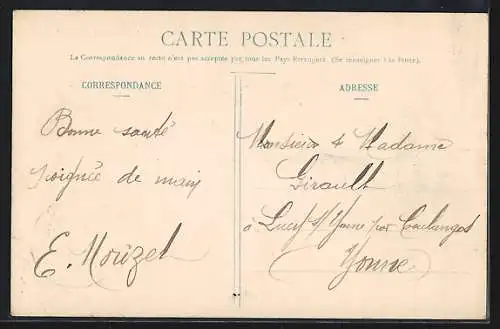 CARTE POSTALE
La Correspondance au recto n'est pas acceptée par tous les Pays Etrangers. (Se renseigner à la Poste).
CORRESPONDANCE
ADRESSE
Bonne santé
Poignée de main
E. Mouzel
Monsieur & Madame
Girault
à Lucy s/ Yonne par Coulanges
Yonne